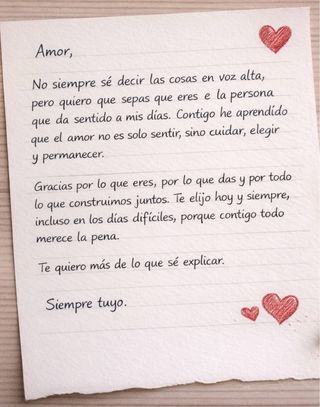 Amor,
No siempre sé decir las cosas en voz alta,
pero quiero que sepas que eres e la persona
que da sentido a mis días. Contigo he aprendído
que el amor no es solo sentir, sino cuidar, elegir
y permanecer.
Gracias por lo que eres, por lo que das y por todo
lo que construimos juntos. Te elijo hoy y siempre,
incluso en los días difíciles, porque contigo todo
merece la pena.
Te quiero más de lo que sé explicar.
Siempre tuyo.